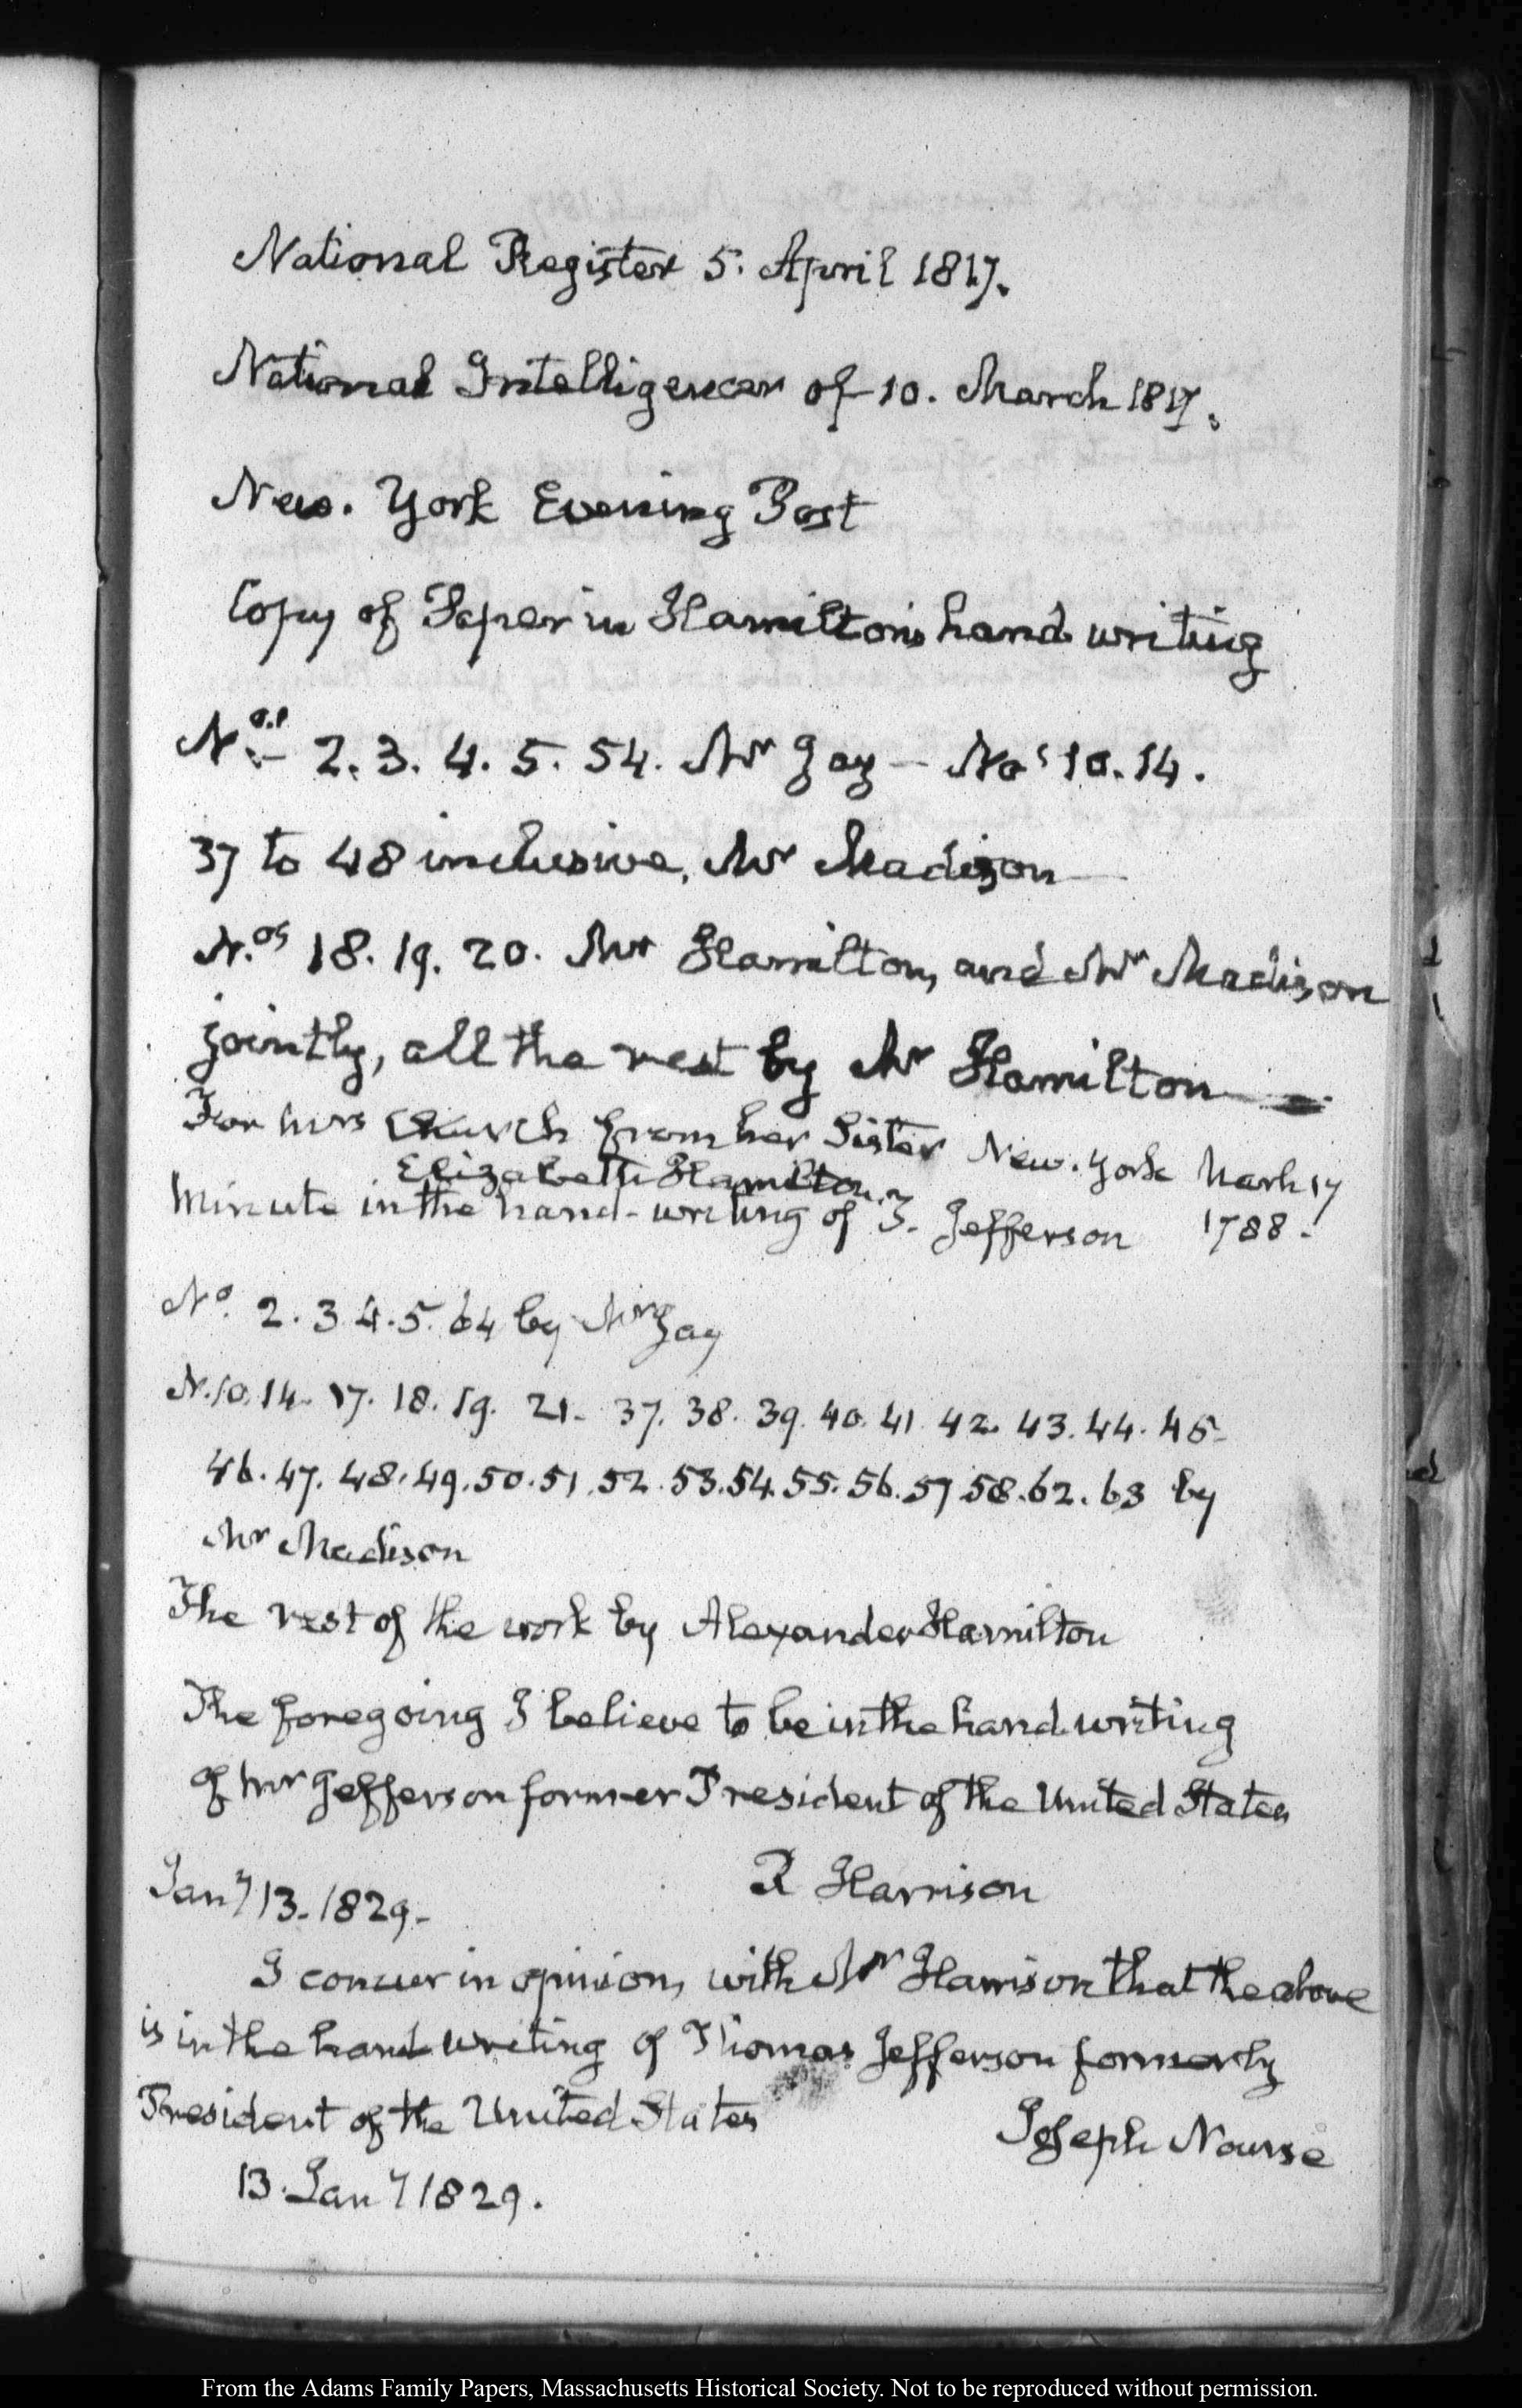 National Register 5. April 1817.
National Intelligencer of 10. March 1817.
New. York Evening Post
Copy of Paper in Hamilton's hand writing
N.os 2. 3. 4. 5. 54. Mr Jay — Nos 10. 14.
37 to 48 inclusive, Mr Madison
N.os 18. 19. 20. Mr Hamilton, and Mr Madison
jointly, all the rest by Mr Hamilton
For Mrs Church from her Sister New. York March 17
Elizabeth Hamilton
Minute in the hand-writing of T. Jefferson 1788.
No. 2. 3 4. 5. 64 by Mr Jay
N. 10. 14. 17. 18. 19. 21. 37. 38. 39. 40. 41. 42. 43. 44. 45.
46. 47. 48. 49. 50. 51. 52. 53. 54. 55. 56. 57 58. 62. 63 by
Mr Madison
The rest of the work by Alexander Hamilton
The foregoing I believe to be in the hand writing
of Mr Jefferson former President of the United States
R Harrison
Jany 13. 1829.
I concur in opinion, with Mr Harrison that the above
is in the hand writing of Thomas Jefferson formerly
President of the United States
Joseph Nourse
13. Jany 1829.
From the Adams Family Papers, Massachusetts Historical Society. Not to be reproduced without permission.